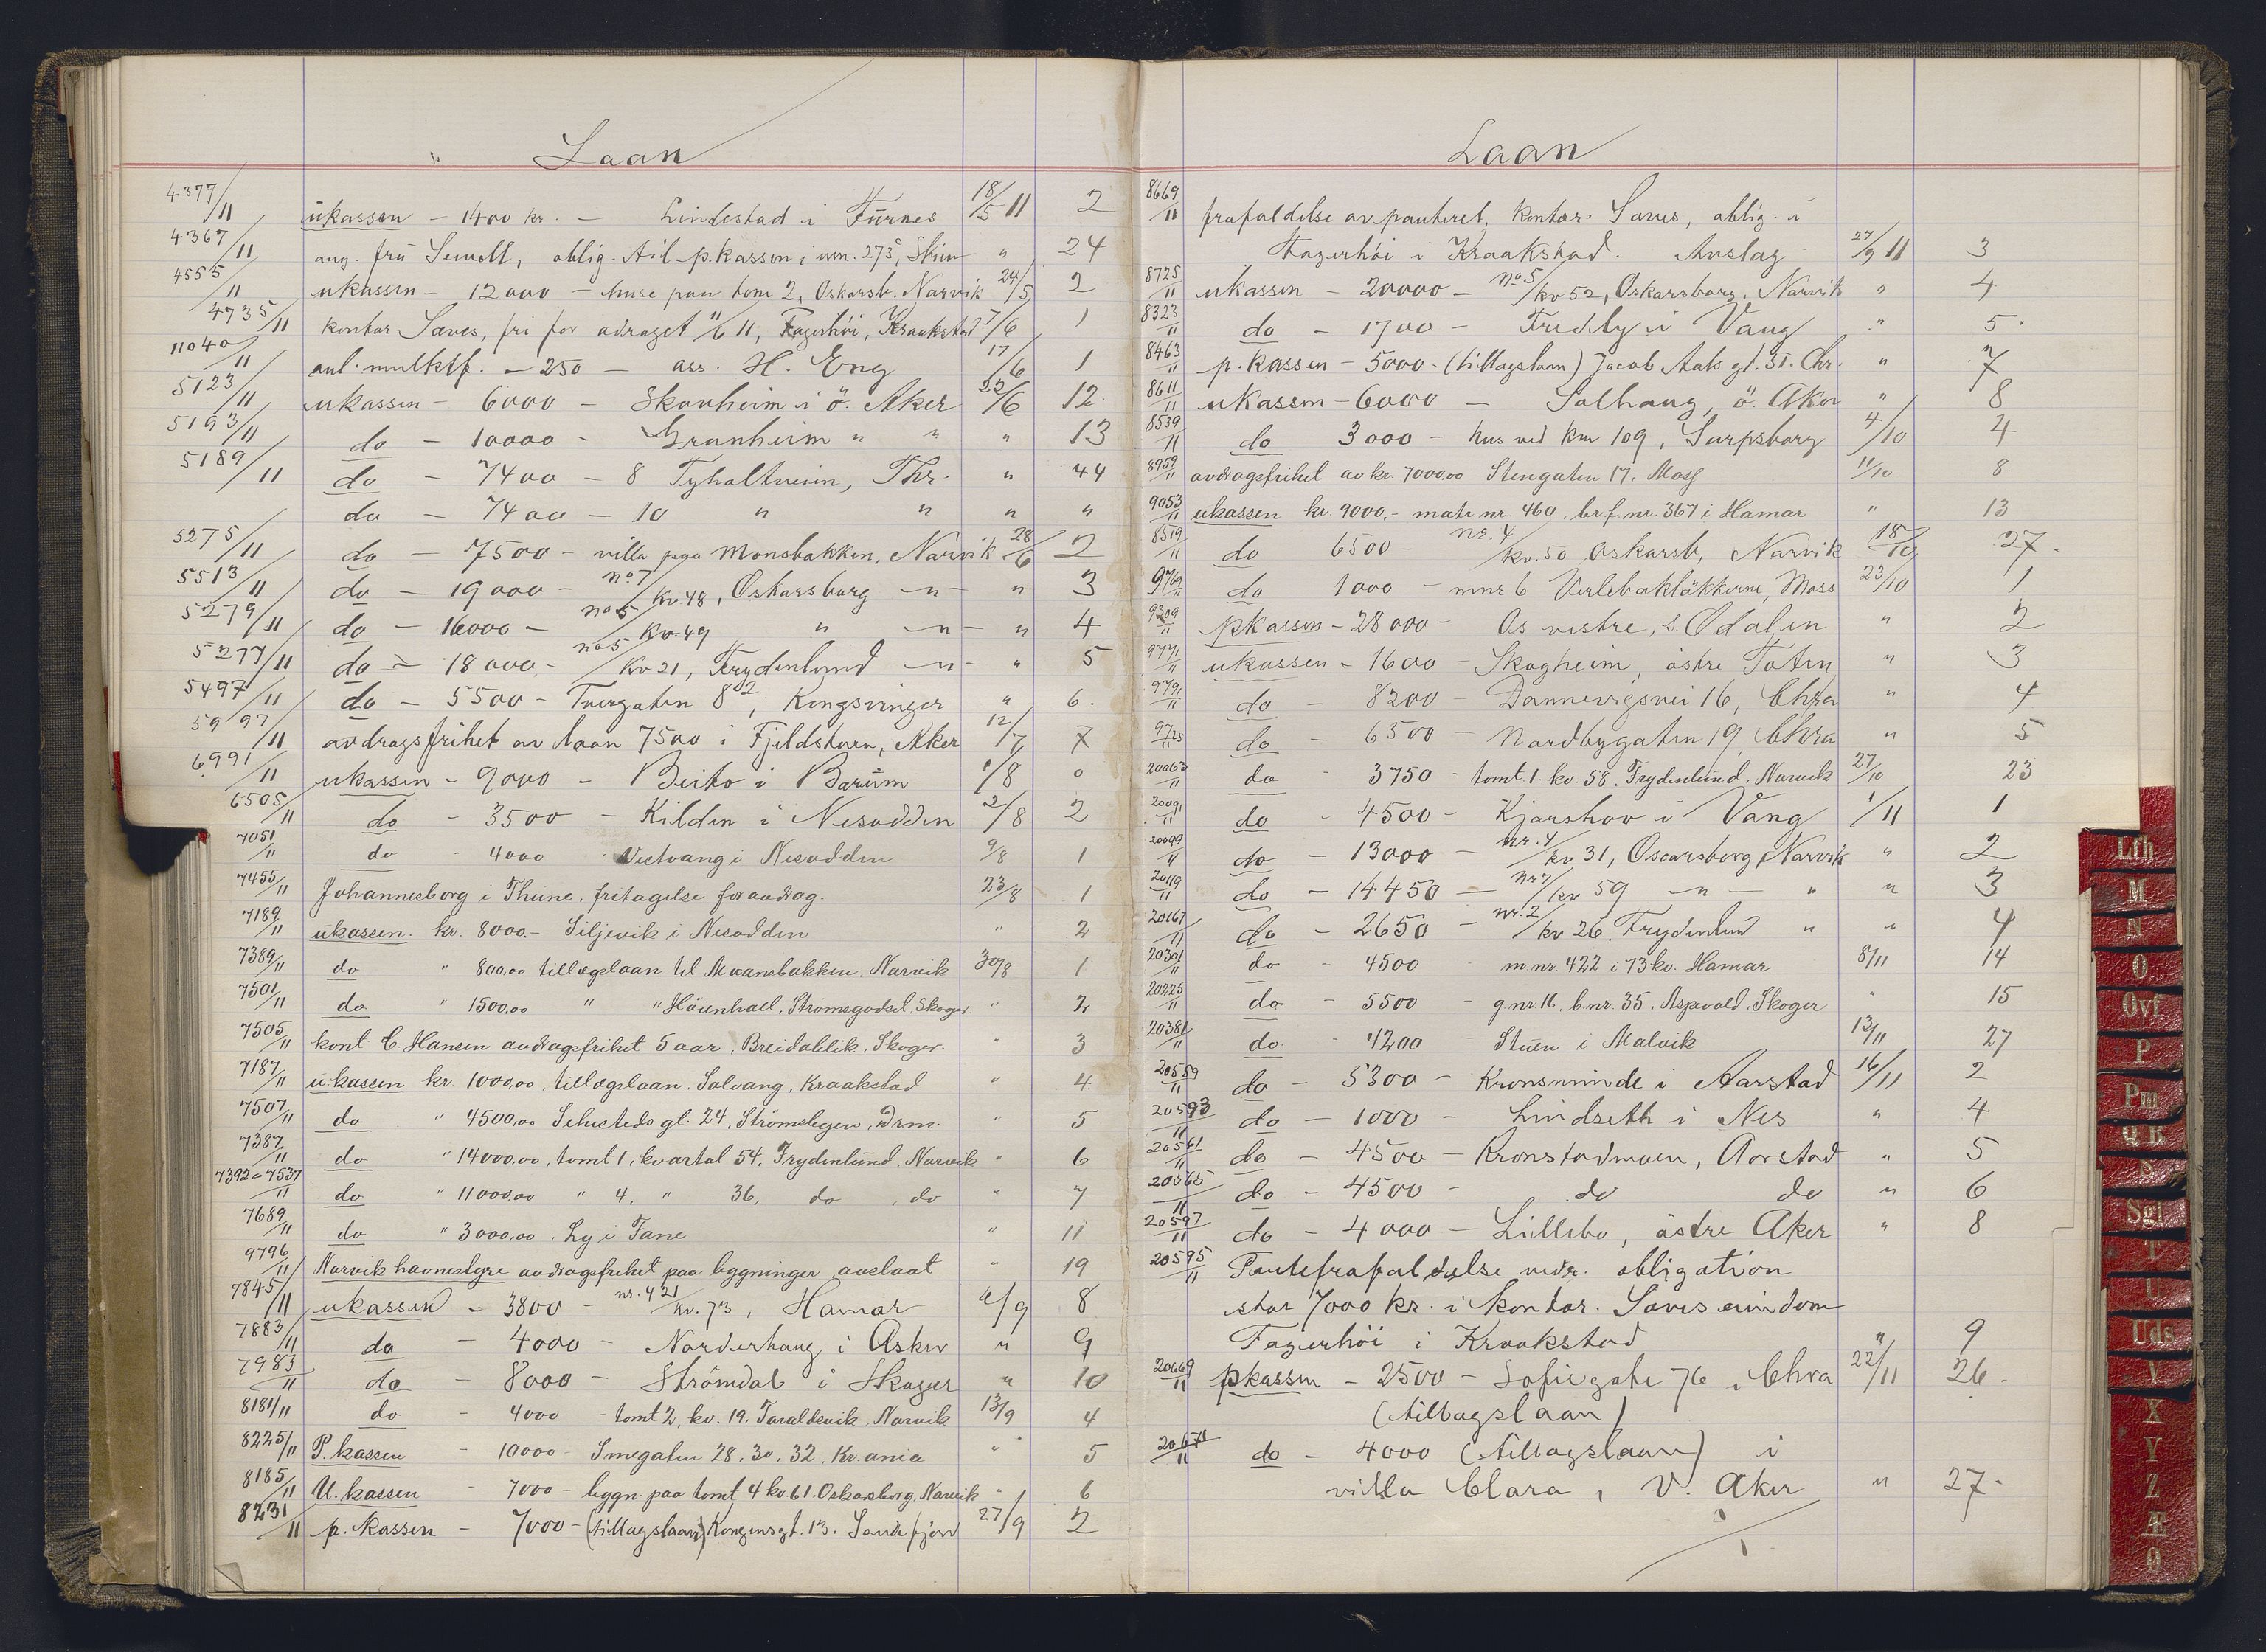 Laan
4377/11 ukassen - 1400 kr. - Lindestad i Furnes 18/5 11 2
4367/11 ang. fru Sewell, oblig. til p.kassen i mn. 275, Skien " 24
4555/11 ukassen - 12000 - huse paa tom 2, Oskarsb. Narvik 24/5 2
4735/11 kontor Sæves, fri for avdraget 11/6 11, Fagerhöi, Kraakstad 7/6 1
11040/11 ant. mulktf. - 250 - ass. H. Eng 17/6 1
5123/11 ukassen - 6000 - Skauheim i ö. Aker 22/6 12
5193/11 do - 10000 - Granheim " " " 13
5189/11 do - 7400 - 8 Tyholtveien, Thr. " 44
do - 7400 - 10 " " " "
5275/11 do - 7500 - villa paa Monsbakken, Narvik 28/6 2
5513/11 do - 19000 - no 7/kv. 48, Oskarsborg -"- " 3
5279/11 do - 16000 - no 5/kv. 49 " -"- " 4
5277/11 do - 18000 - no 5/kv 21, Frydenlund -"- " 5
5497/11 do - 5500 - Tvergaten 8², Kongsvinger " 6
5997/11 avdragsfrihet av laan 7500 i Fjeldstuen, Aker 12/7 7
6991/11 ukassen - 9000 - Beito i Bærum 1/8 0
6505/11 do - 3500 - Kilden i Nesodden 2/8 2
7051/11 do - 4000 - Vestvang i Nesodden 9/8 1
7455/11 Johannesborg i Thune, fritagelse for avdrag. 23/8 1
7189/11 ukassen. kr. 8000.- Siljevik i Nesodden " 2
7389/11 do " 800,00 tillægslaan til Maanebakken, Narvik 30/8 1
7501/11 do " 1500,00 " " Höienhall, Strömsgodset, Skoger. " 2
7505/11 kont. C. Hansen avdragsfrihet 5 aar, Breidablik, Skoger. " 3
7187/11 u.kassen kr 1000,00, tillægslaan. Solvang, Kraakstad " 4
7507/11 do " 4500,00 Schusteds gt. 24, Strömslegen, Drm. " 5
7387/11 do " 14000,00, tomt 1, kvartal 54, Frydenlund, Narvik " 6
7392 a 7537/11 do " 11000,00 " 4, " 36, do, do " 7
7689/11 do " 3000,00, Ly i Fane " 11
9796/11 Narvik havnestyre avdragsfrihet paa bygninger avslaat " 19
7845/11 ukassen - 3800 - nr. 421/kv. 73, Hamar 6/9 8
7883/11 do - 4000 - Norderhaug i Asker " 9
7983/11 do - 8000 - Strömdal i Skoger " 10
8181/11 do - 4000 - tomt 2, kv. 19, Taraldsvik, Narvik 13/9 4
8225/11 P. kassen - 10000 - Smegaten 28. 30. 32. Kr.ania " 5
8185/11 U. kassen - 7000 - bygn. paa tomt 4 kv. 61. Oskarsborg, Narvik " 6
8231/11 p. kassen - 7000 - (tillægslaan) Kongensgt. 13. Sandefjord 27/9 2
Laan
8669/11 frafaldelse av panteret, kontor. Sæves, oblig. i
Fagerhöi i Kraakstad. Avslag 27/9 11 3
8725/11 ukassen - 20000 - no 5/kv 52, Oskarsborg, Narvik " 4
8323/11 do - 1700 - Fredly i Vang " 5
8463/11 p. kassen - 5000 - (tillægslaan) Jacob Aals gt. 31. Chr. " 7
8611/11 ukassen - 6000 - Solhaug, ö. Aker " 8
8539/11 do 3000 - hus ved km 109, Sarpsborg 4/10 4
8959/11 avdragsfrihet av kr. 7000.00 Stengaten 17. Moss 11/10 8
9053/11 ukassen kr. 9000.- matr. nr. 460. br.f. nr. 367 i Hamar " 13
8519/11 do 6500 - nr. 4/kv. 50 Oskarsb, Narvik 18/10 27
9769/11 do 1000 - mnr 6 Verlebaklökkerne, Moss 23/10 1
9209/11 pkassen - 28000 - Os vestre, s. Odalen " 2
9771/11 ukassen - 1600 - Skogheim, östre Toten " 3
9791/11 do - 8200 - Dannevigsvei 16, Chra " 4
9725/11 do - 6500 - Nordbygaten 19, Chra " 5
20063/11 do - 3750 - tomt 1. kv. 58. Frydenlund. Narvik 27/10 23
20091/11 do - 4500 - Kjærshov i Vang 1/11 1
20099/11 do - 13000 - nr. 4/kv 31, Oscarsborg Narvik " 2
20119/11 do - 14450 - nr 7/kv 59 -"- " " 3
20167/11 do - 2650 - nr. 2/kv 26. Frydenlund " " 4
20301/11 do - 4500 - m.nr. 422 i 73 kv. Hamar 8/11 14
20225/11 do - 5500 - g.nr. 16, b.nr. 35, Aspevold. Skoger " 15
20381/11 do - 4200 - Stuen i Malvik 13/11 27
20559/11 do - 5300 - Kronsminde i Aarstad 16/11 2
20593/11 do - 1000 - Lindseth i Nes " 4
20561/11 do - 4500 - Kronstadmoen, Aarstad " 5
20565/11 do - 4500 - do do " 6
20597/11 do - 4000 - Lillebo, östre Aker " 8
20595/11 Pantefrafaldelse vedr. obligation
stor 7000 kr. i kontor. Sæves eiendom
Fagerhöi i Kraakstad " 9
20669/11 pkassen - 2500 - Sofiegate 76, Chra 22/11 26
(tillægslaan)
20671/11 do - 4000 (tillægslaan) i
villa Clara, V. Aker " 27
Lfh
M
N
O
Ovf
P
Pm
Q R
S
Sgl
T
U
Uds
V
X
Y
Z
Æ
Ø